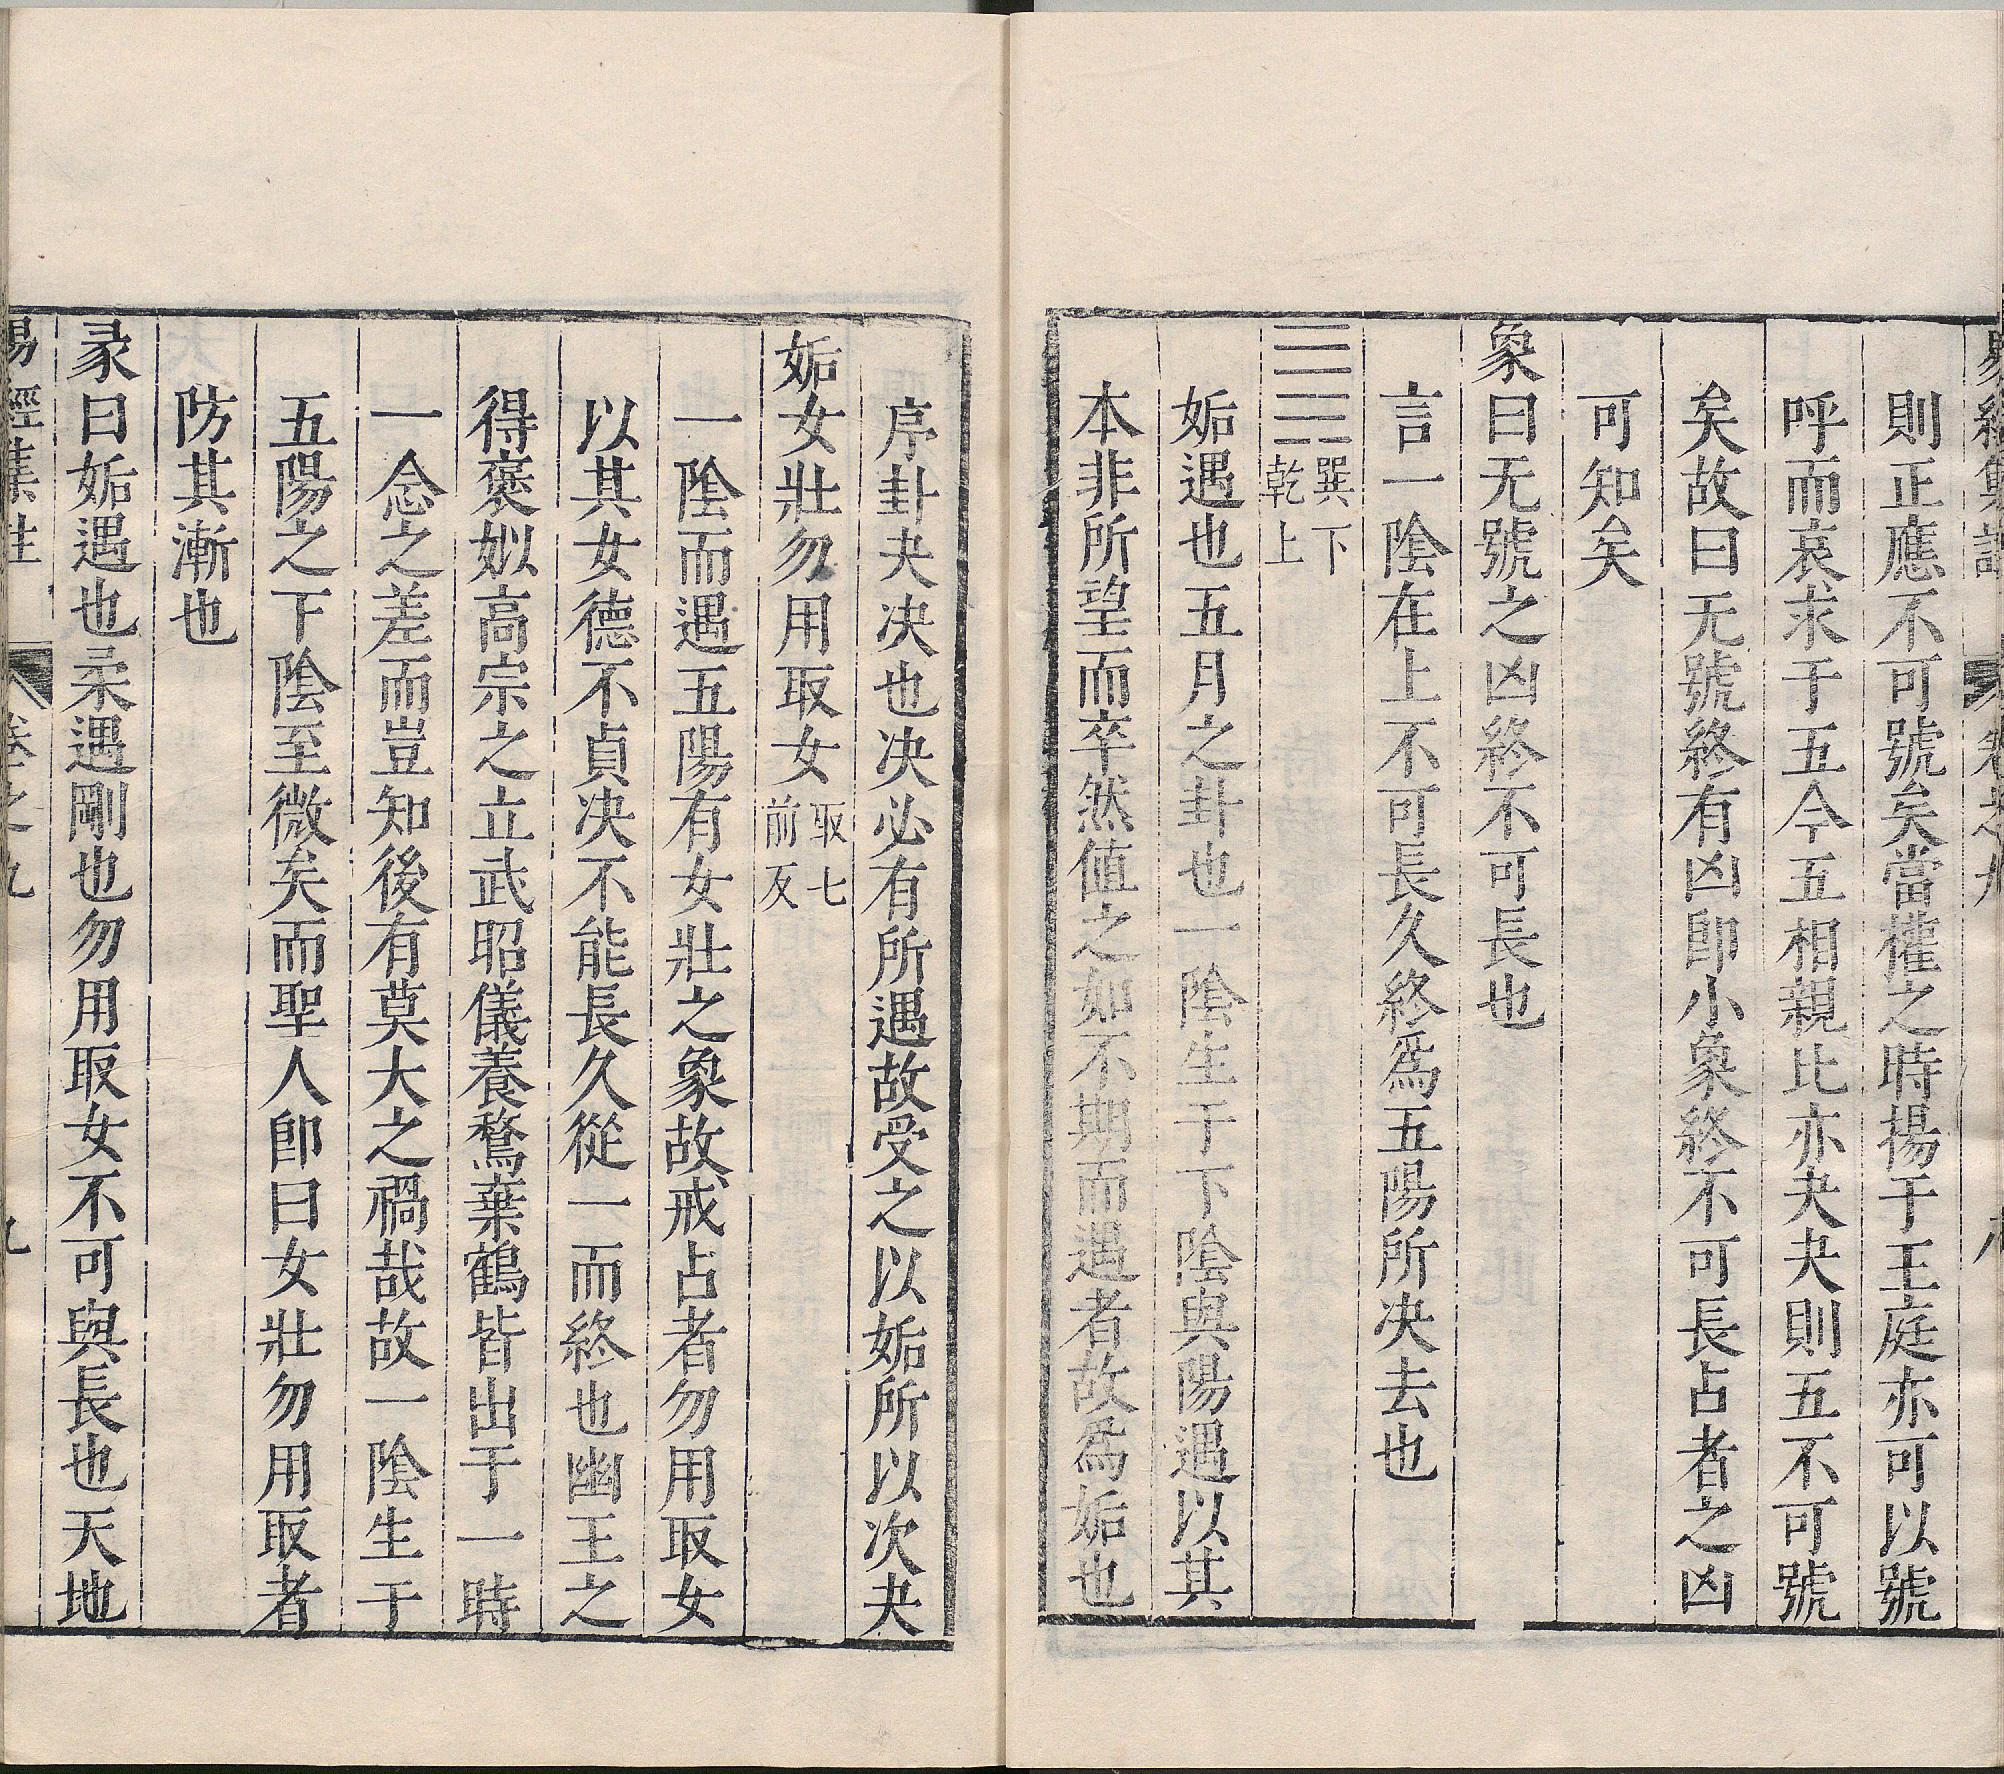 易經集註 卷之九 八
則正應不可號矣當權之時揚于王庭亦可以號
呼而哀求于五今五相親比亦夬夬則五不可號
矣故曰无號終有凶卽小象終不可長占者之凶
可知矣
象曰无號之凶終不可長也
言一陰在上不可長久終爲五陽所决去也
䷫ 巽下
乾上
姤遇也五月之卦也一陰生于下陰與陽遇以其
本非所望而卒然值之如不期而遇者故爲姤也
序卦夬决也决必有所遇故受之以姤所以次夬
姤女壯勿用取女 取七
前反
一陰而遇五陽有女壯之象故戒占者勿用取女
以其女德不貞决不能長久從一而終也幽王之
得褒姒高宗之立武昭儀養鶖棄鶴皆出于一時
一念之差而豈知後有莫大之禍哉故一陰生于
五陽之下陰至微矣而聖人卽曰女壯勿用取者
防其漸也
彖曰姤遇也柔遇剛也勿用取女不可與長也天地
易經集註 卷之九 九